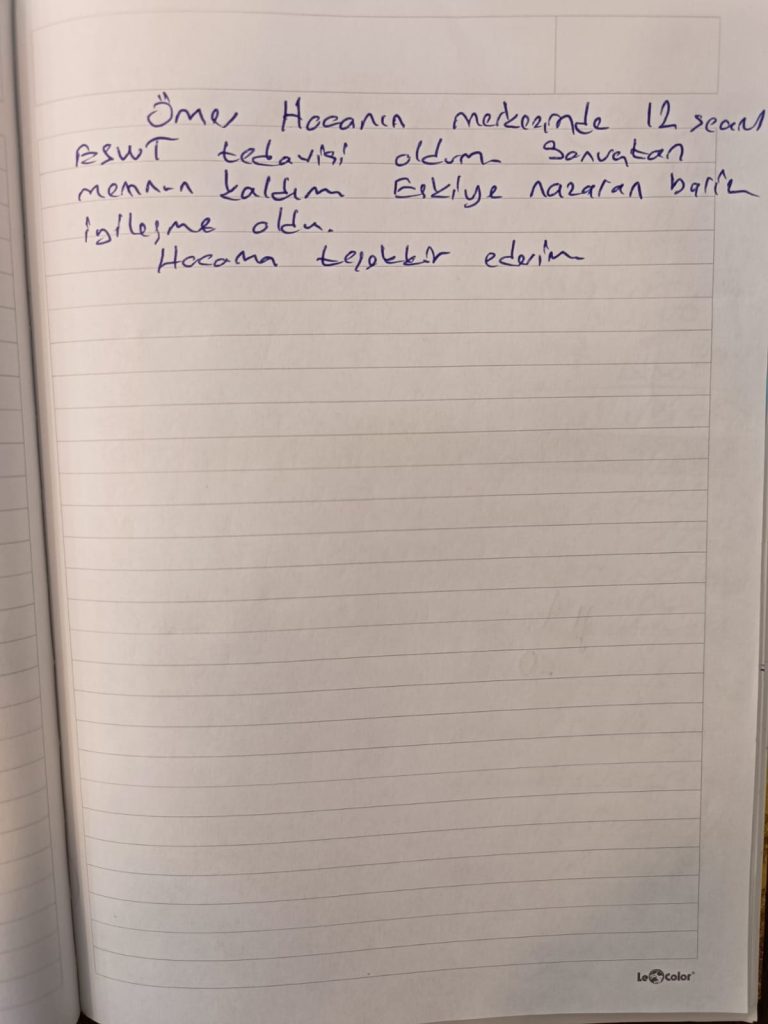 Ömer Hocanın merkezinde 12 seans
ESWT tedavisi oldum Sonuçtan
memnun kaldım Eskiye nazaran bariz
iyileşme oldu.
Hocama teşekkür ederim
Le Color